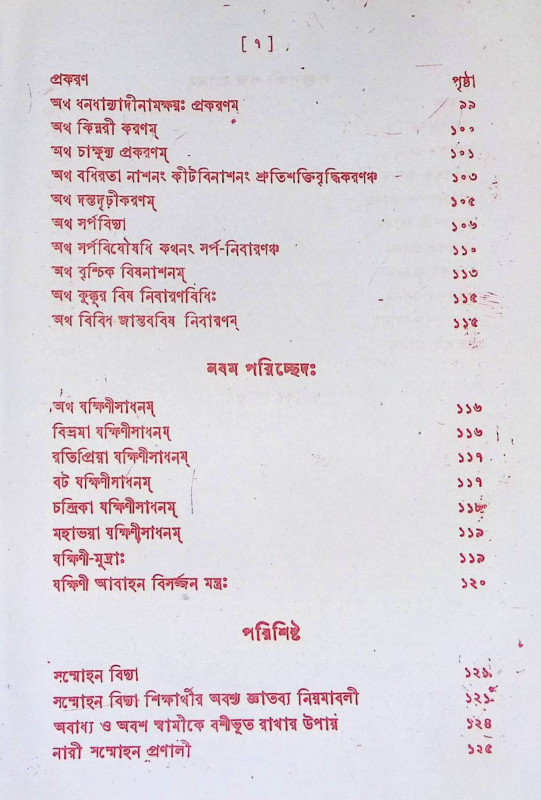 [ ৭ ]
প্রকরণ পৃষ্ঠা
অথ ধনধান্যাদীনামক্ষয়ঃ প্রকরণম্ ৯৯
অথ কিন্নরী করণম্ ১০০
অথ চাক্ষুষ্য প্রকরণম্ ১০১
অথ বধিরতা নাশনং কীটবিনাশনং শ্রুতিশক্তিবৃদ্ধিকরণঞ্চ ১০৩
অথ দন্তদৃঢ়ীকরণম্ ১০৫
অথ সর্পবিদ্যা ১০৬
অথ সর্পবিষৌষধি কথনং সর্প-নিবারণঞ্চ ১১০
অথ বৃশ্চিক বিষনাশনম্ ১১৩
অথ কুক্কুর বিষ নিবারণবিধিঃ ১১৫
অথ বিবিধ জান্তববিষ নিবারণম্ ১১৫
নবম পরিচ্ছেদঃ
অথ যক্ষিণীসাধনম্ ১১৬
বিভ্রমা যক্ষিণীসাধনম্ ১১৬
রতিপ্রিয়া যক্ষিণীসাধনম্ ১১৭
বট যক্ষিণীসাধনম্ ১১৭
চন্দ্রিকা যক্ষিণীসাধনম্ ১১৮
মহাভয়া যক্ষিণীসাধনম্ ১১৯
যক্ষিণী-মুদ্রাঃ ১১৯
যক্ষিণী আবাহন বিসর্জ্জন মন্ত্রঃ ১২০
পরিশিষ্ট
সম্মোহন বিদ্যা ১২১
সম্মোহন বিদ্যা শিক্ষার্থীর অবশ্য জ্ঞাতব্য নিয়মাবলী ১২১
অবাধ্য ও অবশ স্বামীকে বশীভূত রাখার উপায় ১২৪
নারী সম্মোহন প্রণালী ১২৫